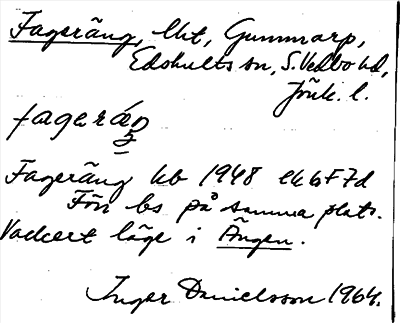 Fageräng, lht, Gummarp,
Edshults sn, S. Vedbo hd,
Jönk. l.
fageräŋ
Fageräng kb 1948 ek bF7d
Förr bs på samma plats.
Vackert läge i Ängen.
Inger Danielsson 1964.